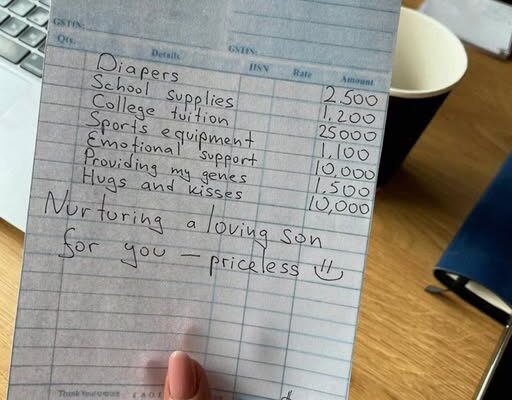 GSTIN:
GSTIN:
Qty. Details HSN Rate Amount
Diapers 2,500
School supplies 1,200
College tuition 25000
Sports equipment 1,100
Emotional support 10,000
Providing my genes 1,500
Hugs and kisses 10,000
Nurturing a loving son
for you — priceless
Thank You E & O.E